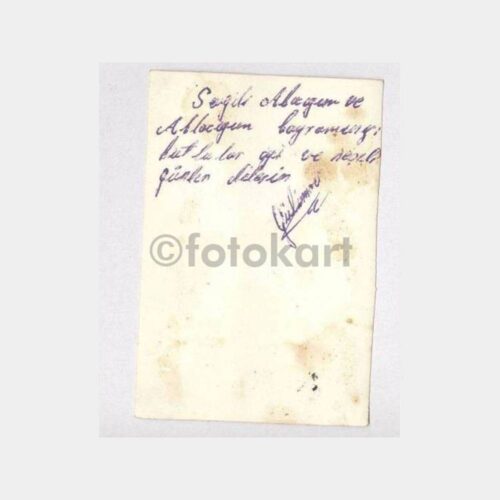 Sevgili Abacığım ve
Ablacığım bayramınızı
kutlular iyi ve neşeli
günler dilerim
©fotokart